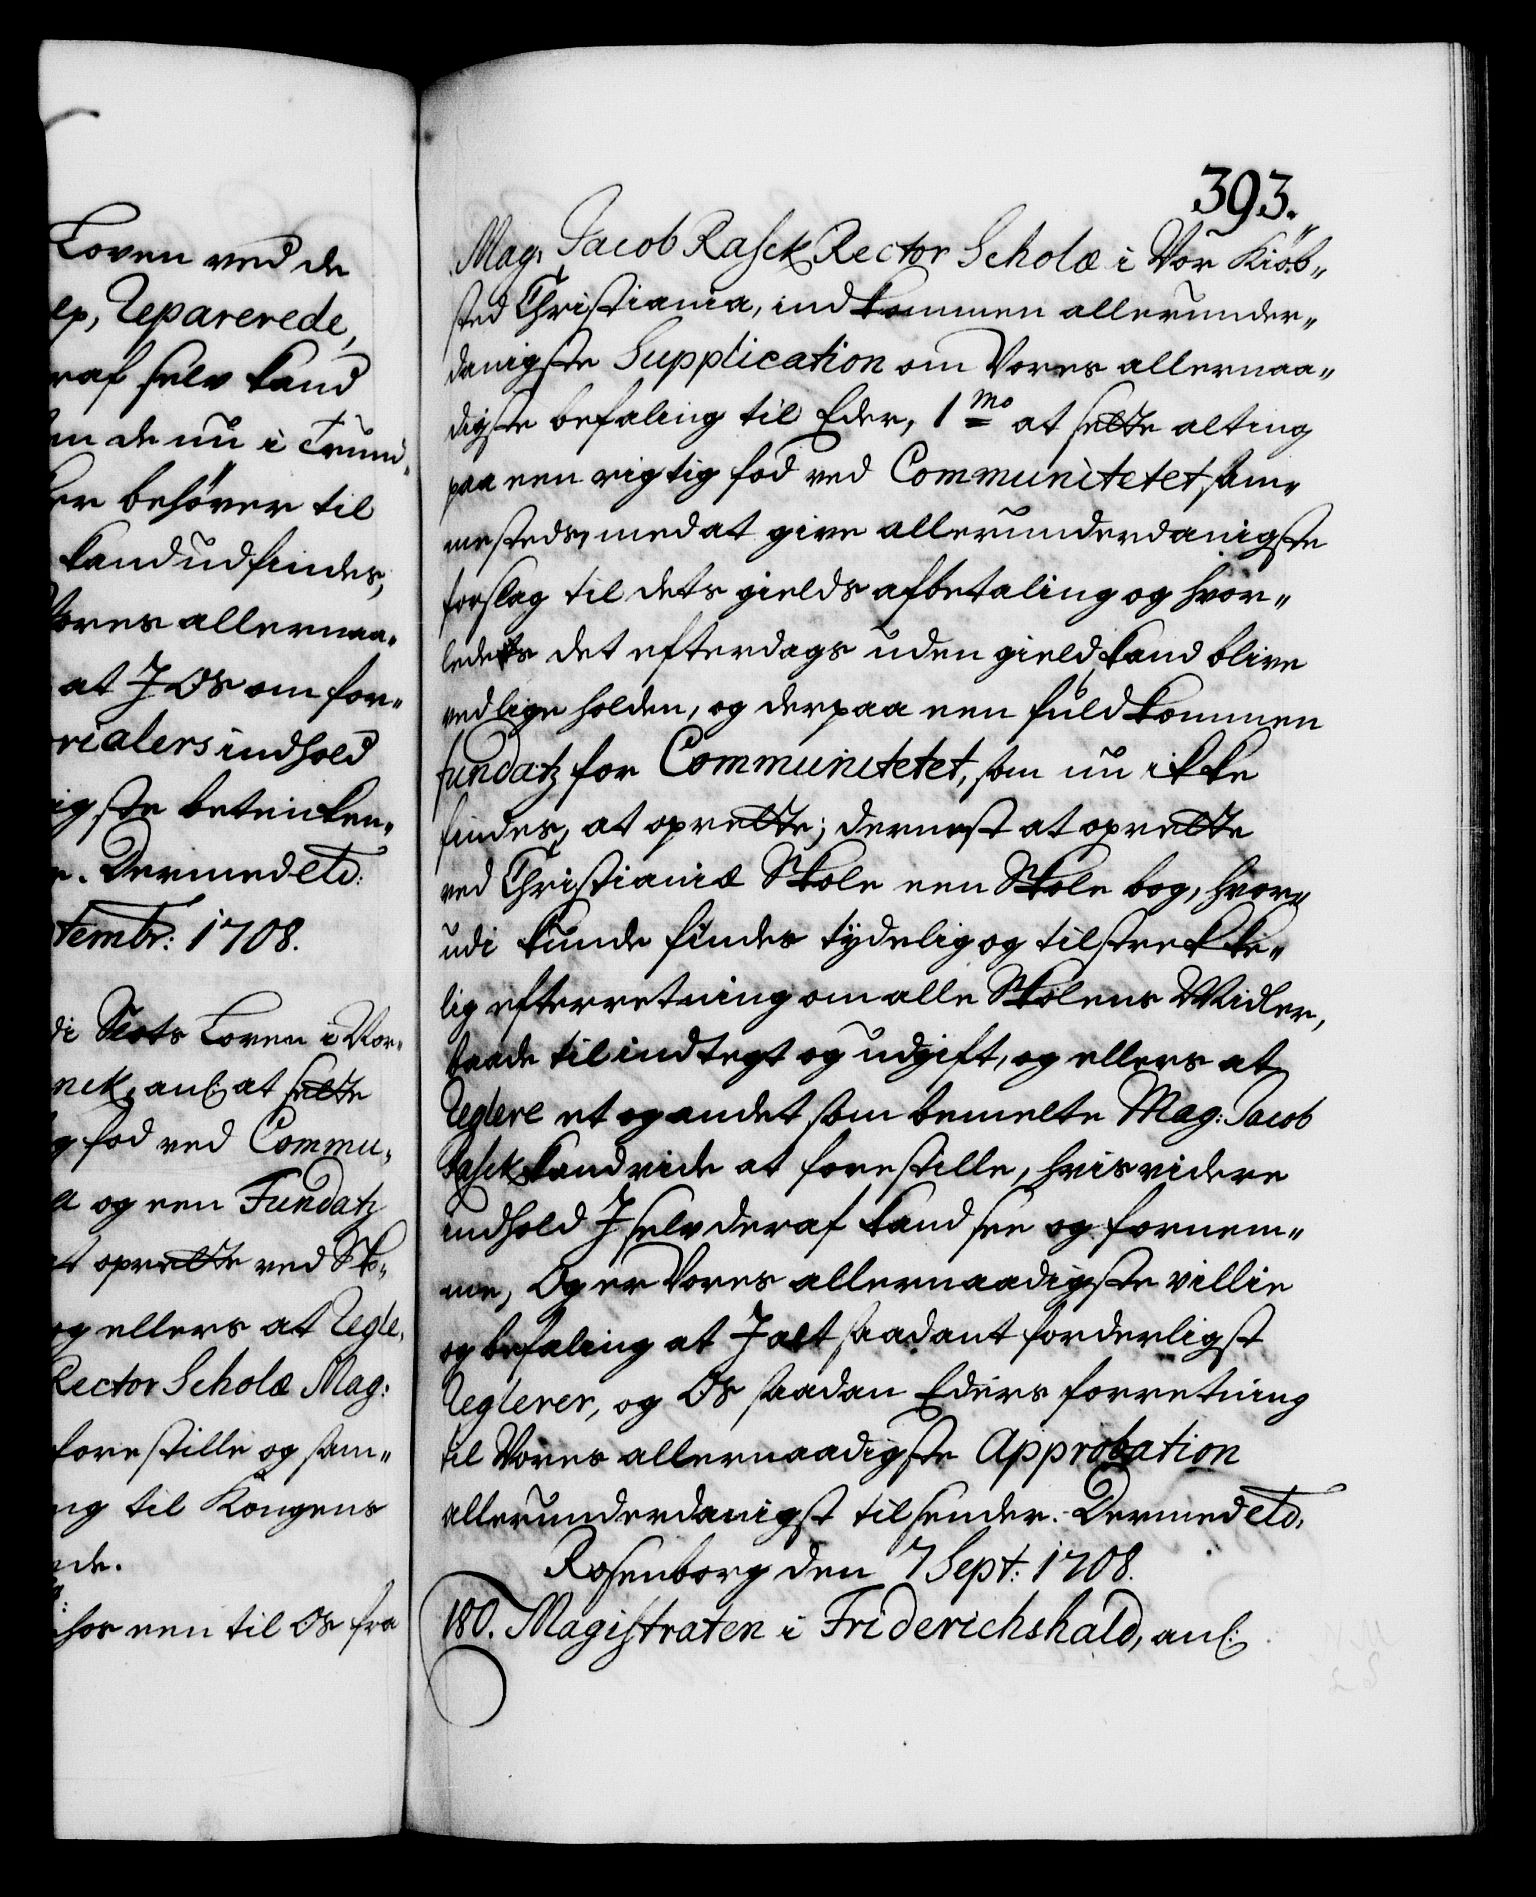 Loven ved de
lp, Reparerede,
raf selv kand
en de nu i Trund„
er behøver til
kand udfindes,
Vores allernaa„
at J Os om for„
rialers indhold
igste betencken„
e. Dermed etc:
tembr: 1708.
di Slots Loven i Nor„
neck, anl: at sette
g fod ved Commu„
a og een Fundatz
t oprette ved Sko„
og ellers at Regle„
Rector Scholæ Mag:
forestille og sam„
ng til Kongens
nde.
hos een til Os fra
393.
Mag: Jacob Rasck Rector Scholæ i Vor Kiøb„
sted Christiania, indkommen allerunder„
danigste Supplication om Vores allernaa„
digste befaling til Eder, 1mo at sette alting
paa een rigtig fod ved Communitetet sam„
mesteds, med at give allerunderdanigste
forslag til dets gields afbetaling og hvor„
ledes det efterdags uden gield kand blive
vedlige holden, og derpaa een fuldkommen
fundatz for Communitetet, som nu ikke
findes, at oprette; dernest at oprette
ved Christianiæ Skole een Skole bog, hvor„
udi kunde findes tydelig og tilstrekke„
lig efterretning om alle Skolens Midler,
baade til indtegt og udgift, og ellers at
Reglere et og andet som bemelte Mag: Jacob
Rasck kand vide at forestille, hvis videre
indhold J selv deraf kand see og fornem„
me, Og er Vores allernaadigste villie
og befaling at J alt saadant forderligst
Reglerer, og Os saadan Eders forretning
til Vores allernaadigste Approbation
allerunderdanigst tilsender. Dermed etc,
Rosenborg den 7 Sept: 1708.
180. Magistraten i Friderichshald, anl: